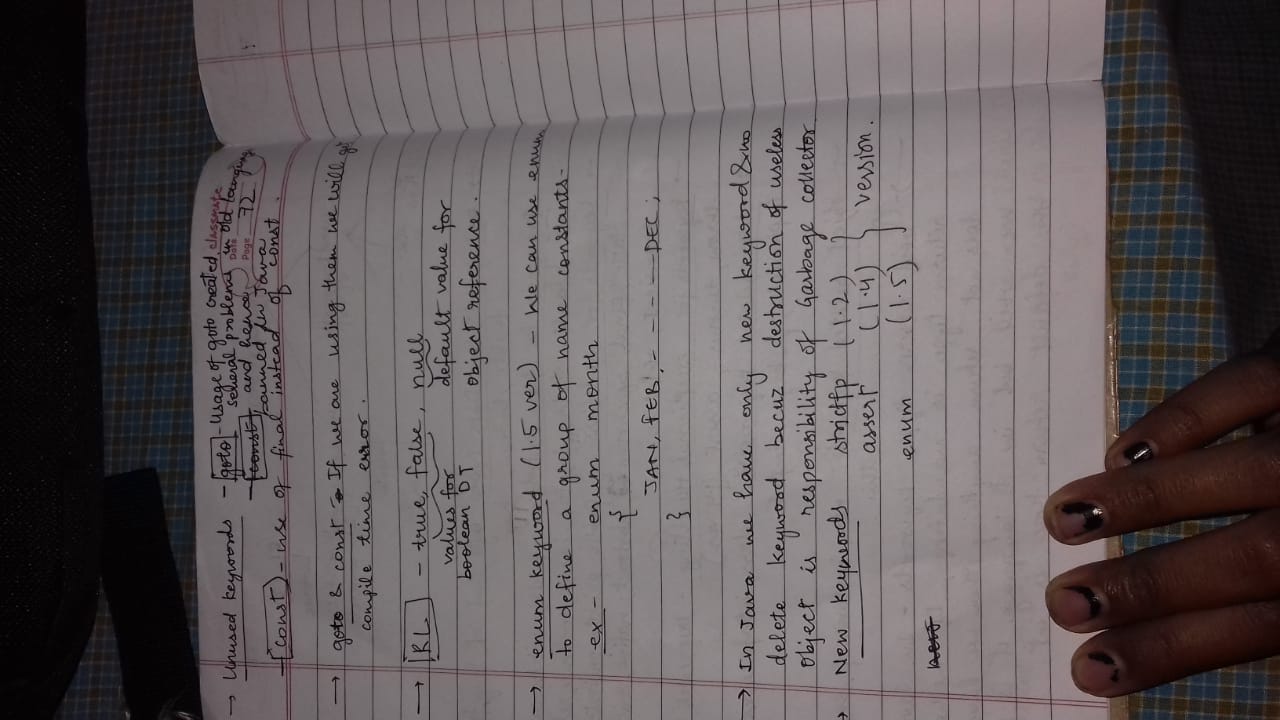 → Unused keywords - goto - Usage of goto created classmate
several problems in old language
Date
const and hence Page 72
banned in Java
- const - use of final instead of const.
→ goto & const - If we are using them we will get
compile time error.
→ RL - true, false, null
values for default value for
boolean DT object reference.
→ enum keyword (1.5 ver) - We can use enum
to define a group of name constants-
ex - enum month
{
JAN, FEB, - - - - DEC;
}
→ In Java we have only new keyword & no
delete keyword becuz destruction of useless
object is responsibility of Garbage collector
→ New keywords strictfp (1.2)
assert (1.4) } version.
enum (1.5)
new